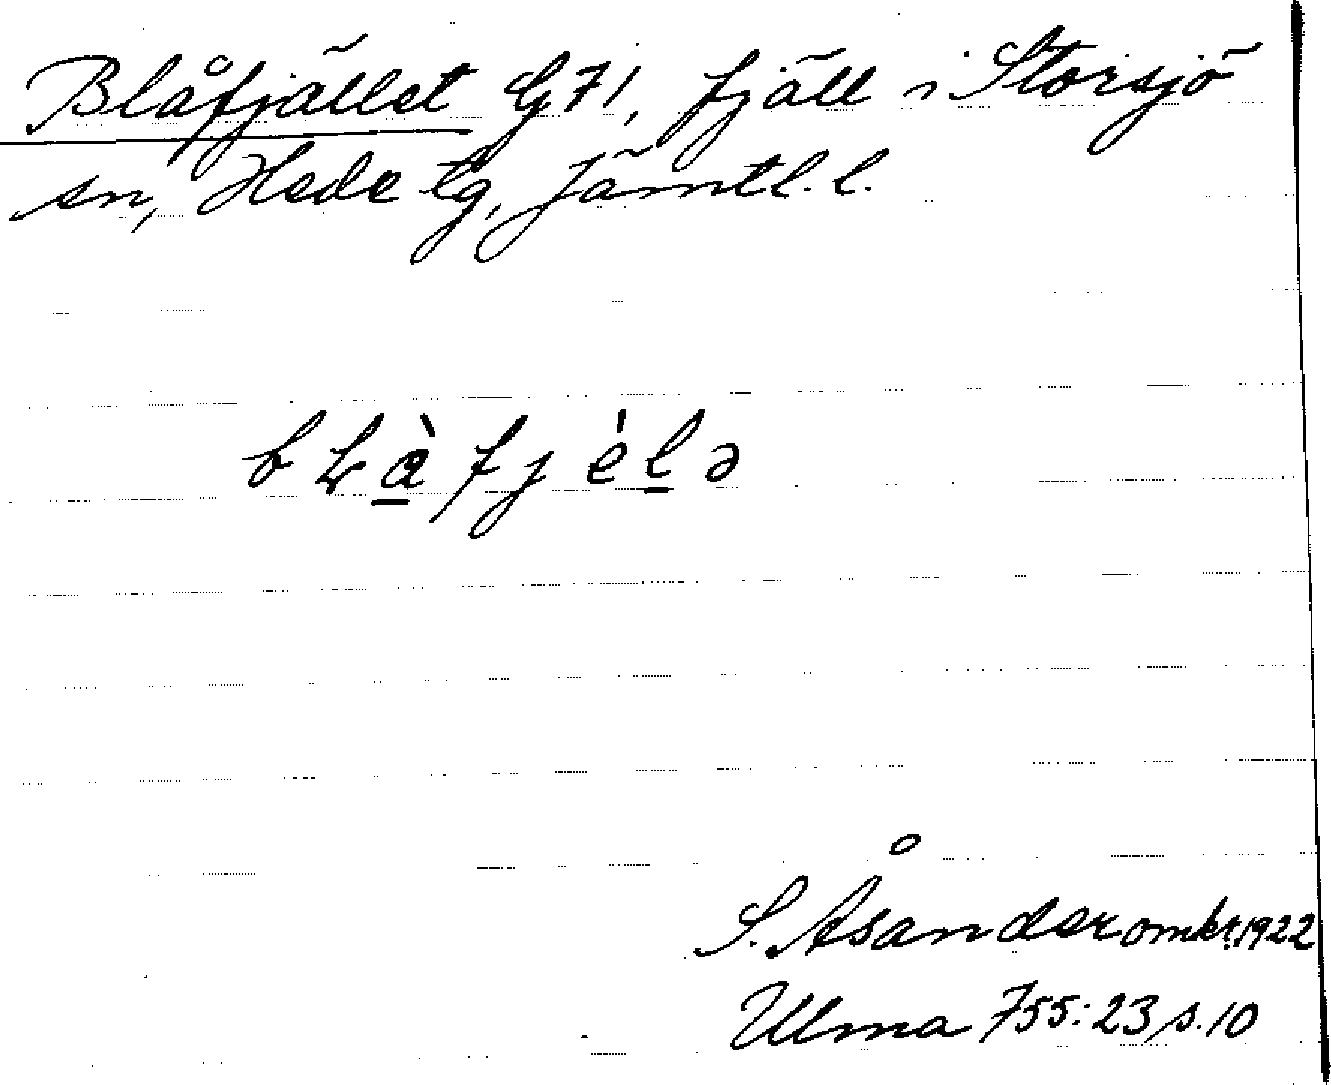 Blåfjället G71, fjäll i Storsjö
sn, Hede tg, Jämtl. l.
bɫà̱fjéḻə
S. Åsander omkr. 1922
Ulma 755:23, s. 10